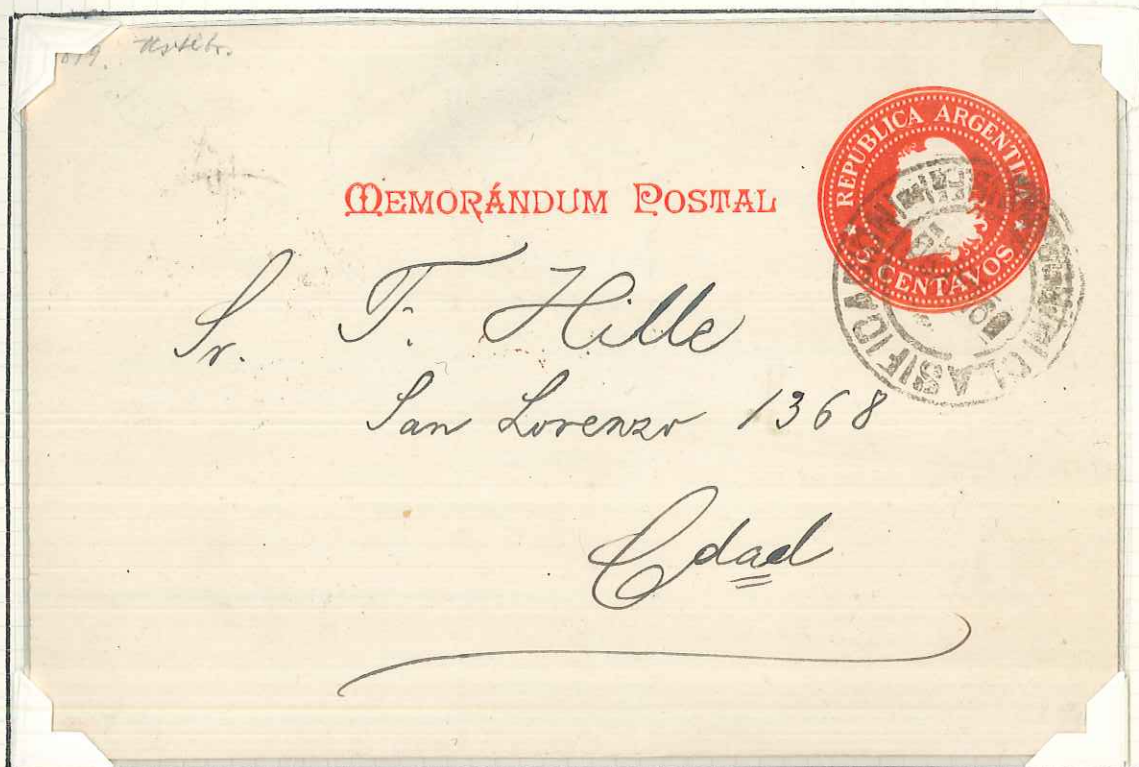 MEMORÁNDUM POSTAL
REPUBLICA ARGENTINA
5 CENTAVOS
CLASIFICA
Sr. F. Hille
San Lorenzo 1368
Cdad